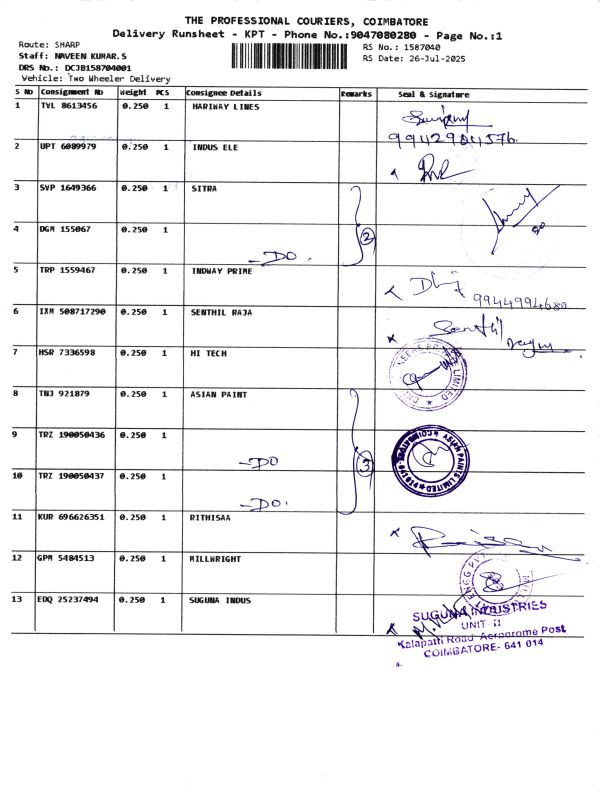 THE PROFESSIONAL COURIERS, COIMBATORE
Delivery Runsheet - KPT - Phone No.:9047080280 - Page No.:1
Route: SHARP
RS No.: 1587040
Staff: NAVEEN KUMAR.S
RS Date: 26-Jul-2025
DRS No.: DCJB158704001
Vehicle: Two Wheeler Delivery
S No Consignment No Weight PCS Consignee Details Remarks Seal & Signature
1 TVL 8613456 0.250 1 HARIWAY LINES
9942904576
2 UPT 6089979 0.250 1 INDUS ELE
3 SVP 1649366 0.250 1 SITRA
4 DGM 155067 0.250 1
-DO. 2
5 TRP 1559467 0.250 1 INDWAY PRIME
9944994680
6 IXM 508717290 0.250 1 SENTHIL RAJA
Senthil
7 HSR 7336598 0.250 1 HI TECH
PRIVATE LIMITED
8 TNJ 921879 0.250 1 ASIAN PAINT
9 TRZ 190050436 0.250 1
-DO 3
ASIAN PAINTS LIMITED
10 TRZ 190050437 0.250 1
-DO.
11 KUR 696626351 0.250 1 RITHISAA
12 GPM 5484513 0.250 1 MILLWRIGHT
ENGG PVT
13 EDQ 25237494 0.250 1 SUGUNA INDUS
SUGUNA INDUSTRIES
UNIT-II
Kalapatti Road Aerodrome Post
COIMBATORE- 641 014